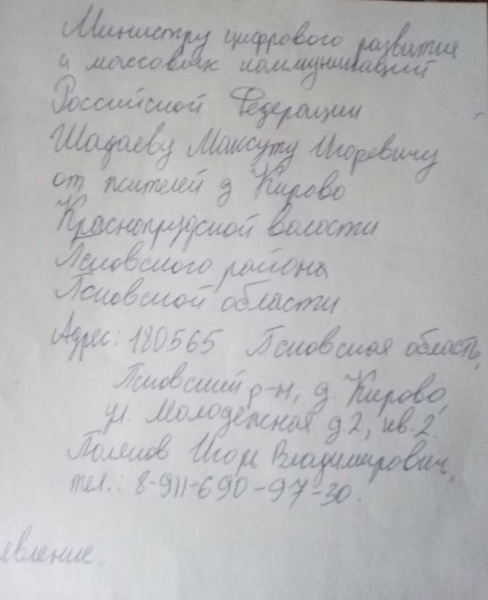 Министру цифрового развития
и массовых коммуникаций
Российской Федерации
Шадаеву Максуту Игоревичу
от жителей д Кирово
Краснопрудской волости
Псковского района
Псковской области
Адрес: 180565 Псковская область,
Псковский р-н, д. Кирово,
ул. Молодежная д 2, кв. 2.
Поляков Игорь Владимирович,
тел.: 8-911-690-97-30.
явление.